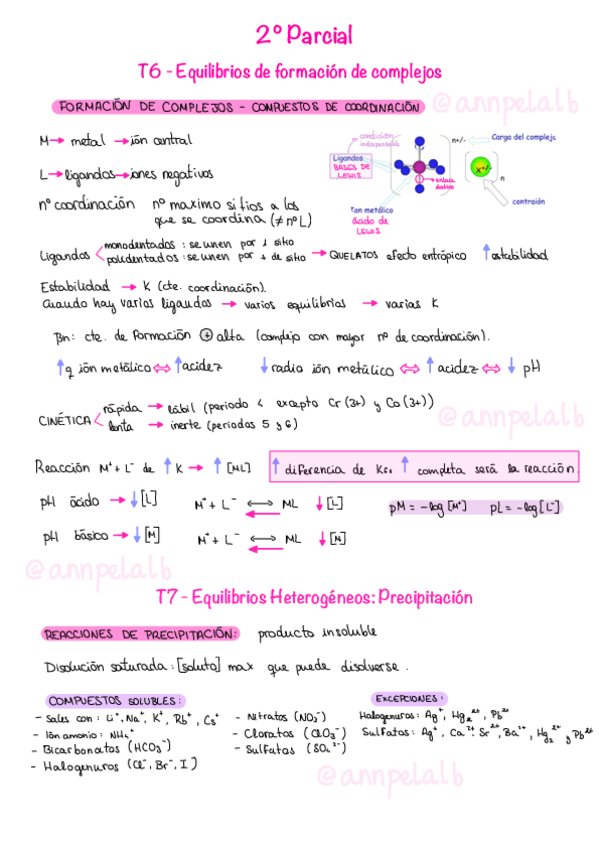 2º Parcial
T6 - Equilibrios de formación de complejos
FORMACIÓN DE COMPLEJOS - COMPUESTOS DE COORDINACIÓN
@annpelalb
M → metal → ión central
condición indispensable
n+/-
Carga del complejo
Ligandos
BASES DE LEWIS
X+/-
enlace dativo
n
contraión
Ion metálico
ácido de LEWIS
L → ligandos → iones negativos
nº coordinación nº maximo sitios a los que se coordina (≠ nº L)
Ligandos
monodentados : se unen por 1 sitio
polidentados : se unen por + de sitio → QUELATOS efecto entrópico ↑ estabilidad
Estabilidad → K (cte. coordinación).
Cuando hay varios ligandos → varios equilibrios → varias K
βn: cte. de formación ⊕ alta (complejo con mayor nº de coordinación).
↑q ión metálico ⇔ ↑acidez ↓ radio ión metálico ⇔ ↑ acidez ⇔ ↓ pH
CINÉTICA
rápida → lábil (periodo 4 excepto Cr (3+) y Co (3+))
lenta → inerte (periodos 5 y 6)
@annpelalb
Reacción M⁺ + L⁻ de ↑ K → ↑ [ML]
↑ diferencia de KF, ↑ completa será la reacción.
pH ácido → ↓ [L] M⁺ + L⁻ ⟷ ML ↓ [L] pM = -log [M⁺] pL = -log [L⁻]
pH básico → ↓ [M] M⁺ + L⁻ ⟷ ML ↓ [M]
@annpelalb
T7 - Equilibrios Heterogéneos: Precipitación
REACCIONES DE PRECIPITACIÓN: producto insoluble
Disolución saturada : [soluto] max que puede disolverse.
COMPUESTOS SOLUBLES :
- Sales con : Li⁺, Na⁺, K⁺, Rb⁺, Cs⁺
- Ión amonio : NH₄⁺
- Bicarbonatos (HCO₃⁻)
- Halogenuros (Cl⁻, Br⁻, I)
- Nitratos (NO₃⁻)
- Cloratos (ClO₃⁻)
- Sulfatos (SO₄²⁻)
EXCEPCIONES :
Halogenuros : Ag⁺, Hg₂²⁺, Pb²⁺
Sulfatos : Ag⁺, Ca²⁺, Sr²⁺, Ba²⁺, Hg₂²⁺ y Pb²⁺
@annpelalb